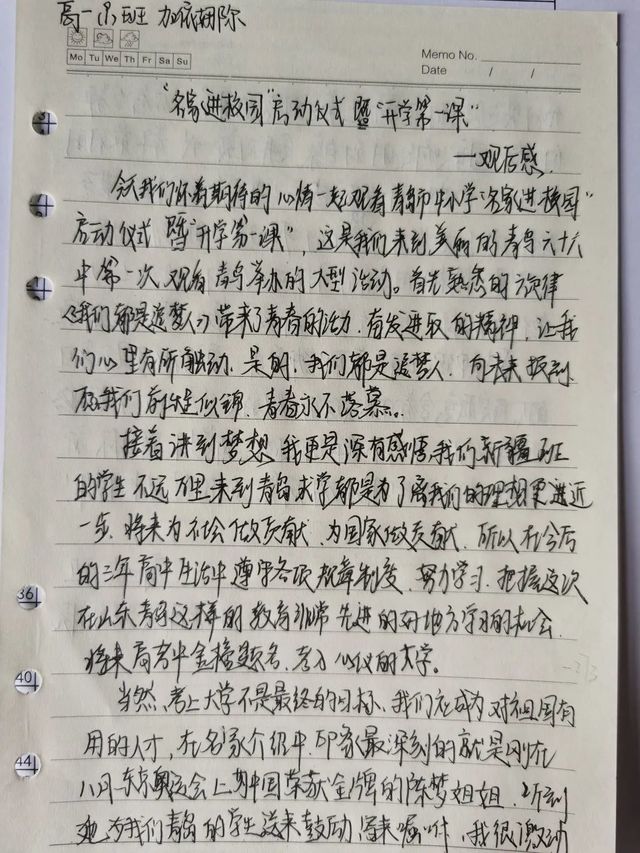 高一 班 加依娜
Mo Tu We Th Fr Sa Su
Memo No.
Date / /
"名家进校园"启动仪式暨"开学第一课"
一观后感
今天我们怀着期待的心情一起观看青岛市中小学"名家进校园"
启动仪式 暨"开学第一课"，这是我们来到美丽的青岛六十六
中第一次观看青岛举办的大型活动。首先熟悉的旋律
《我们都是追梦人》带来了青春的活力，奋发进取的精神，让我
们心里有所触动，是的，我们都是追梦人，向未来报到，
愿我们前程似锦，青春永不落幕。
接着讲到梦想，我更是深有感悟，我们新疆班
的学生不远万里来到青岛求学都是为了离我们的理想更进近
一步，将来为社会做贡献，为国家做贡献，所以在今后
的三年高中生活中遵守各项规章制度，努力学习，把握这次
在山东青岛这样的教育非常先进的好地方学习的机会，
将来高考中金榜题名，考入心仪的大学。
当然，考上大学不是最终的目标，我们应成为对祖国有
用的人才，在名家介绍中，印象最深刻的就是刚在
八月东京奥运会上为中国荣获金牌的陈梦姐姐，听到
她为我们青岛的学生送来鼓励，送来嘱咐，我很激动
36
40
44